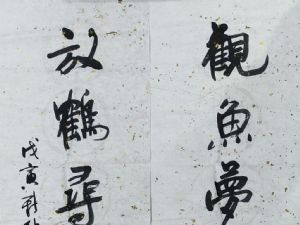 觀魚夢
放鶴尋
戊寅